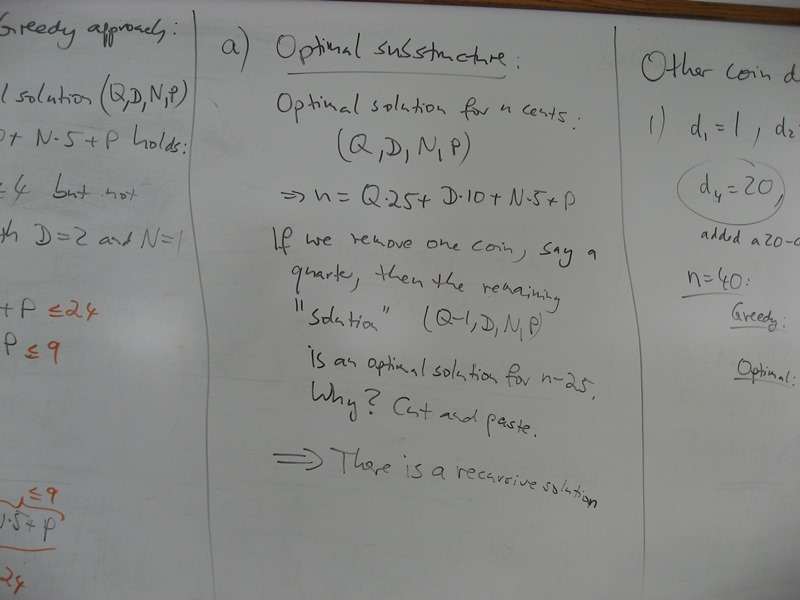 Greedy approach:
l solution (Q,D,N,P)
+ N·5 + P holds:
≤4 but not
th D=2 and N=1
+ P ≤24
P ≤9
≤9
N·5+P
24
a) Optimal substructure:
Optimal solution for n cents:
(Q,D,N,P)
⇒ n = Q·25 + D·10 + N·5 + P
If we remove one coin, say a
quarter, then the remaining
"solution" (Q-1,D,N,P)
is an optimal solution for n-25.
Why? Cut and paste.
⇒ There is a recursive solution
Other coin d
1) d₁=1, d₂
d₄=20,
added a 20-c
n=40:
Greedy:
Optimal: